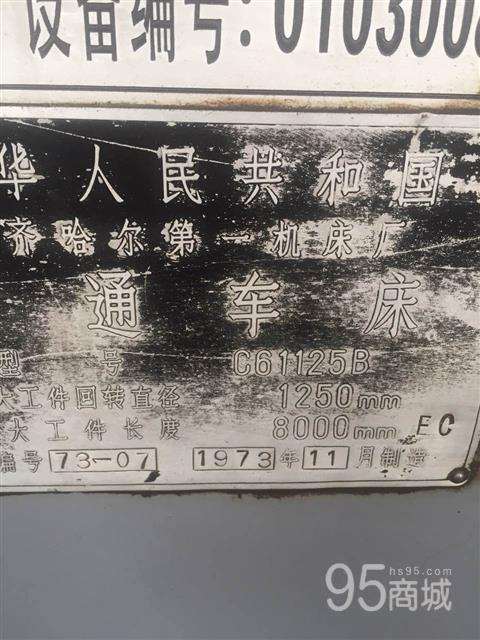 设备编号:0103008
华人民共和国
齐哈尔第一机床厂
通车床
型号 C61125B
大工件回转直径 1250mm
大工件长度 8000mm EC
编号 73-07 1973年11月制造
hs95.com
95商城